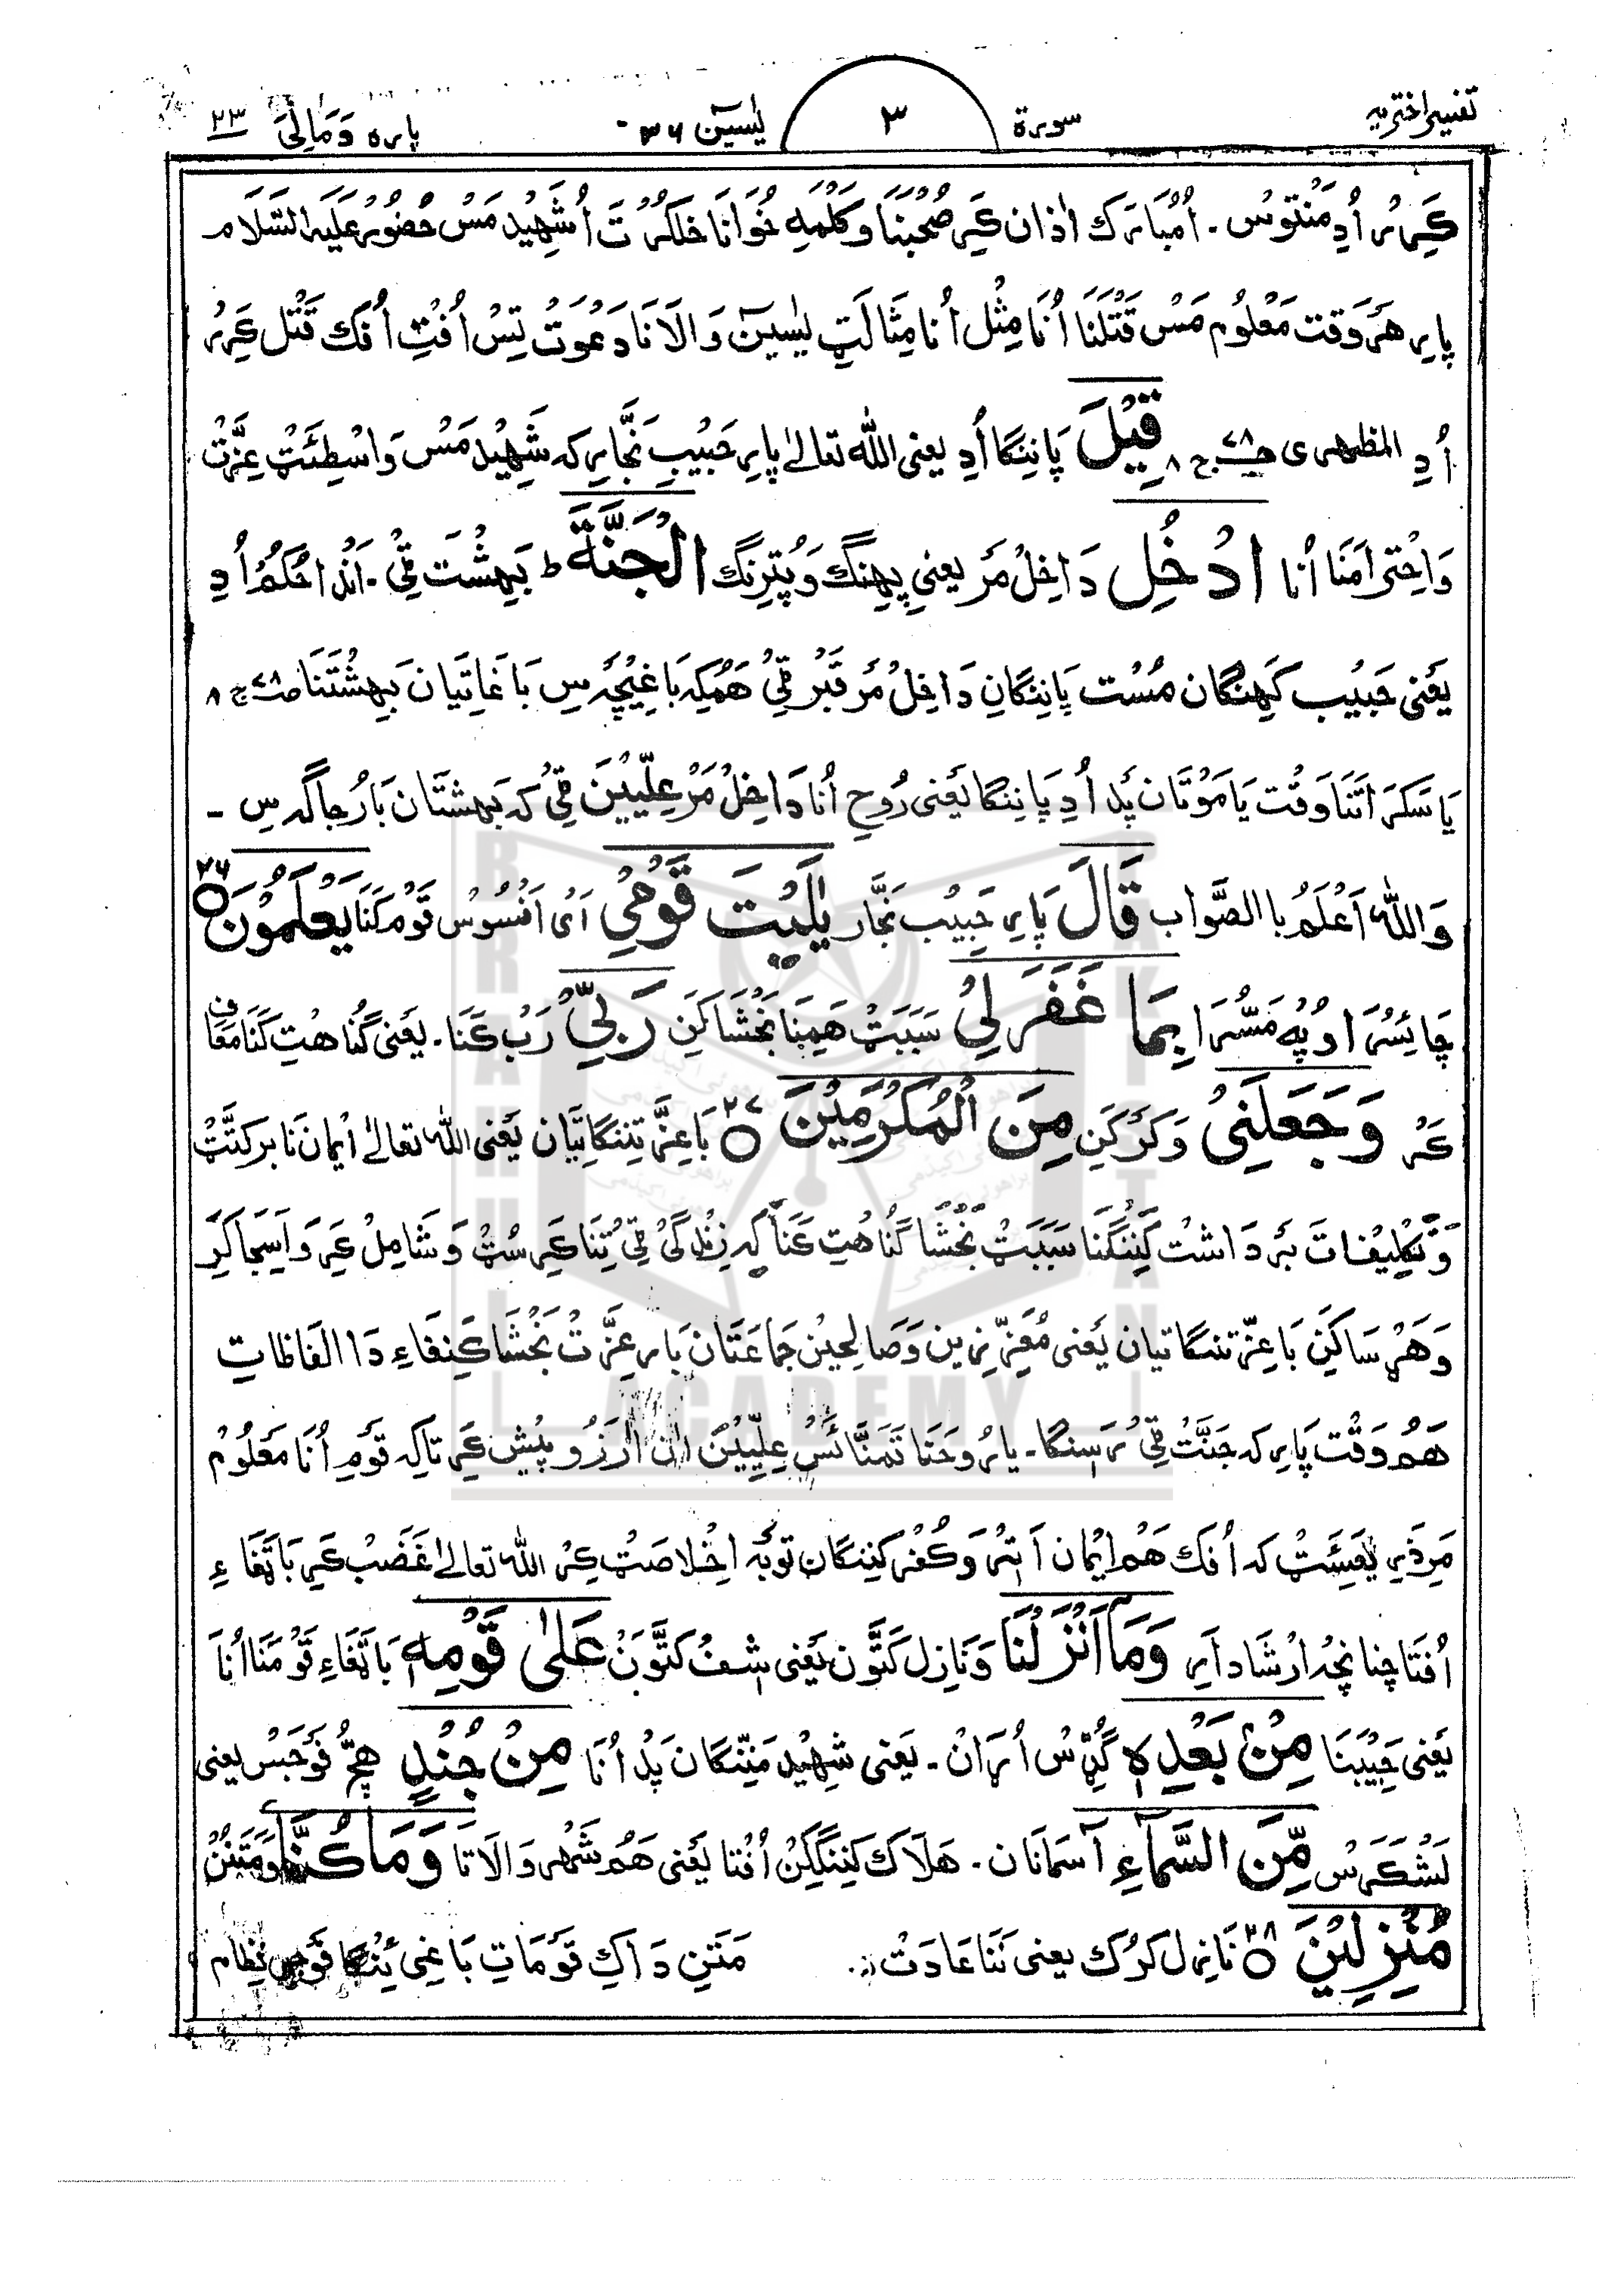 تفسیر اختریه سورة ۳ یٰسٓین ۳۶ پاره وَمَالِیَ ۲۳
کِرِیر اُدِ مَنتوس۔ اُمُبارَک اذان کَرِ صُحبنَا وَکَلمهِ خُوانَا خلکُرتَ اُ شَهِید مَسْ حُضُور عَلَیهِ السَّلَام
پارِ هَر وَقت مَعْلُوم مَسْ قَتْلَنا اُنَا مِثْل اُنا مِثَالَتِ یٰسِینٓ وَالَا نَا دَعْوَتْ تِسُ اُفتِ اُفک قَتْل کَرِر
اُدِ المظهری ص۷۸ ج۸ قِیْلَ پَاننگا اُدِ یعنی اللّٰه تعالےٰ پارِ حَبِیْبِ نَجَّارِ که شَهِیْد مَسْ وَاسْطِئَتْ عِزَّتْ
وَاحْتِرَامَنَا اُنا ادْخُلِ دَاخِلْ مَر یعنی پِهنگ وَپُتِرنگ الْجَنَّةَ ط بَهِشْت قِیْ۔ اَنْدا حُکْمُ اُدِ
یَعنی حَبِیْب کَهِنگان مُسْت پاننگانِ دَاخِلْ مَر قَبْر قِیْ هَمکه بَاغِیْچَه سِ بَاغَاتیان بَهِشْتَنا ص۷۸ ج۸
یَا سَکَرَاتَنَا وَقْت یَا مَوْتان پَد اُدِ پاننگا یَعنی رُوحِ اُنا دَاخِلْ مَرْ عِلِّیِّیْنَ قِیْ که بَهشتَان بَارُ جاگه سِ۔
وَاللّٰهُ اَعْلَمُ با الصَّواب قَالَ پارِ حَبِیْب نَجَّار یٰلَیْتَ قَوْمِیْ اَی اَفسُوس قَوْم کَنَا یَعْلَمُوْنَ ۲۶
چائسُر اوُ پُه مَسُّرَا بِمَا غَفَرَلِیْ سَبَبَتْ هَمِنَا بَخْشَا کَنِ رَبِّیْ رَبْ کَنَا۔ یَعنی گُناهتِ کَنَا مَعَاف
کَر وَجَعَلَنِیْ وَکَرکَنِ مِنَ الْمُکْرَمِیْنَ ۲۷ بَاعِزَّتننگاتیَان یَعنی اللّٰه تعالےٰ اِیمان نَا برکتَتْ
وَتَکْلِیفات بَرداشت کَننگنا سَبَبَتْ بَخْشَا گُناهتِ کَنَا که زِنْدگی قِیْ تِنَا کَرِسُتْ وَشَامِل کَرِ وَاَسِجا کَرِ
وَهَرسَا کَنِ بَاعِزَّتننگاتیان یَعنی مُعَزِّزین وَصَالِحِیْن جَمَاعَتَان بارِ عِزَّتْ بَخْشَا کَنِ فَاءِ دَا الفاظاتِ
هَمْ وَقْت پارِ که جَنَّتْ قِیْ رَسنگا۔ یارُوحَنَا تَمَنَّا ئَسْ عِلِّیِّیْنَ آن آرزُو پیش کَرِ تاکه قَوْمِ اُنَا مَعْلُوم
مَرِذِی یَعِینَتْ که اُفک هَم اِیْمان اَتِرْ وَکُفر کَننگان توبَه اِخْلاصَتْ کِر اللّٰه تعالےٰ غَضَبْ کَرِ بَاتَغَاءِ
اُفتا چنانچه اِرْشَاد اَرِ وَمَا اَنْزَلْنَا وَنَازِل کَتَّوُن یَعنی شفْ کَتَّوَن عَلٰی قَوْمِهٖ بَاتَغَاءِ قَوْمَنَا اُنَا
یَعنی حَبِیْبنَا مِنْ بَعْدِهٖ گُڈِّسْ اُرَان۔ یَعنی شهِید مَننگان پَدْ اُنَا مِنْ جُنْدٍ هِچُّ فَوْجَسْ یعنی
لَشْکَرَسْ مِّنَ السَّمَآءِ آسمانان۔ هَلَاک کَننگکِن اُفتا یَعنی هَم شَهْر وَالَاتا وَمَا کُنَّا وَمَتَنُن
مُنْزِلِیْنَ ۲۸ نَازِل کَرُک یعنی نَنَا عَادَتْ مَتَنِ دَاکِ قَوْمَاتِ بَاغِی نَنگا فَوجی نِظام